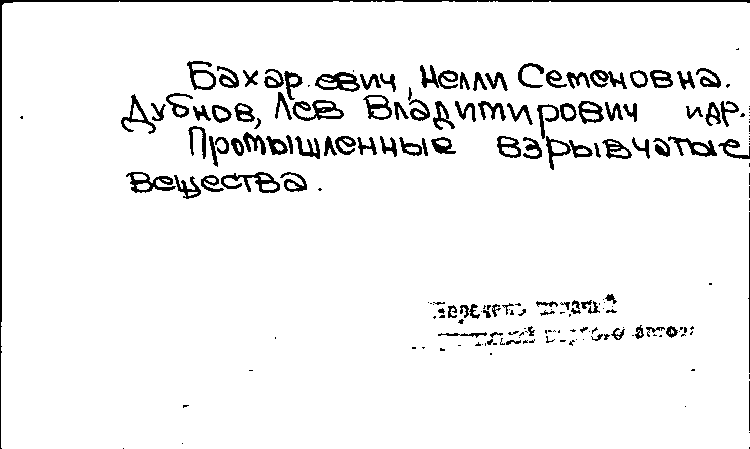 Бахаревич, Нелли Семеновна.
Дубнов, Лев Владимирович и др.
Промышленные взрывчатые
вещества.
Перечень изданий
первого автора